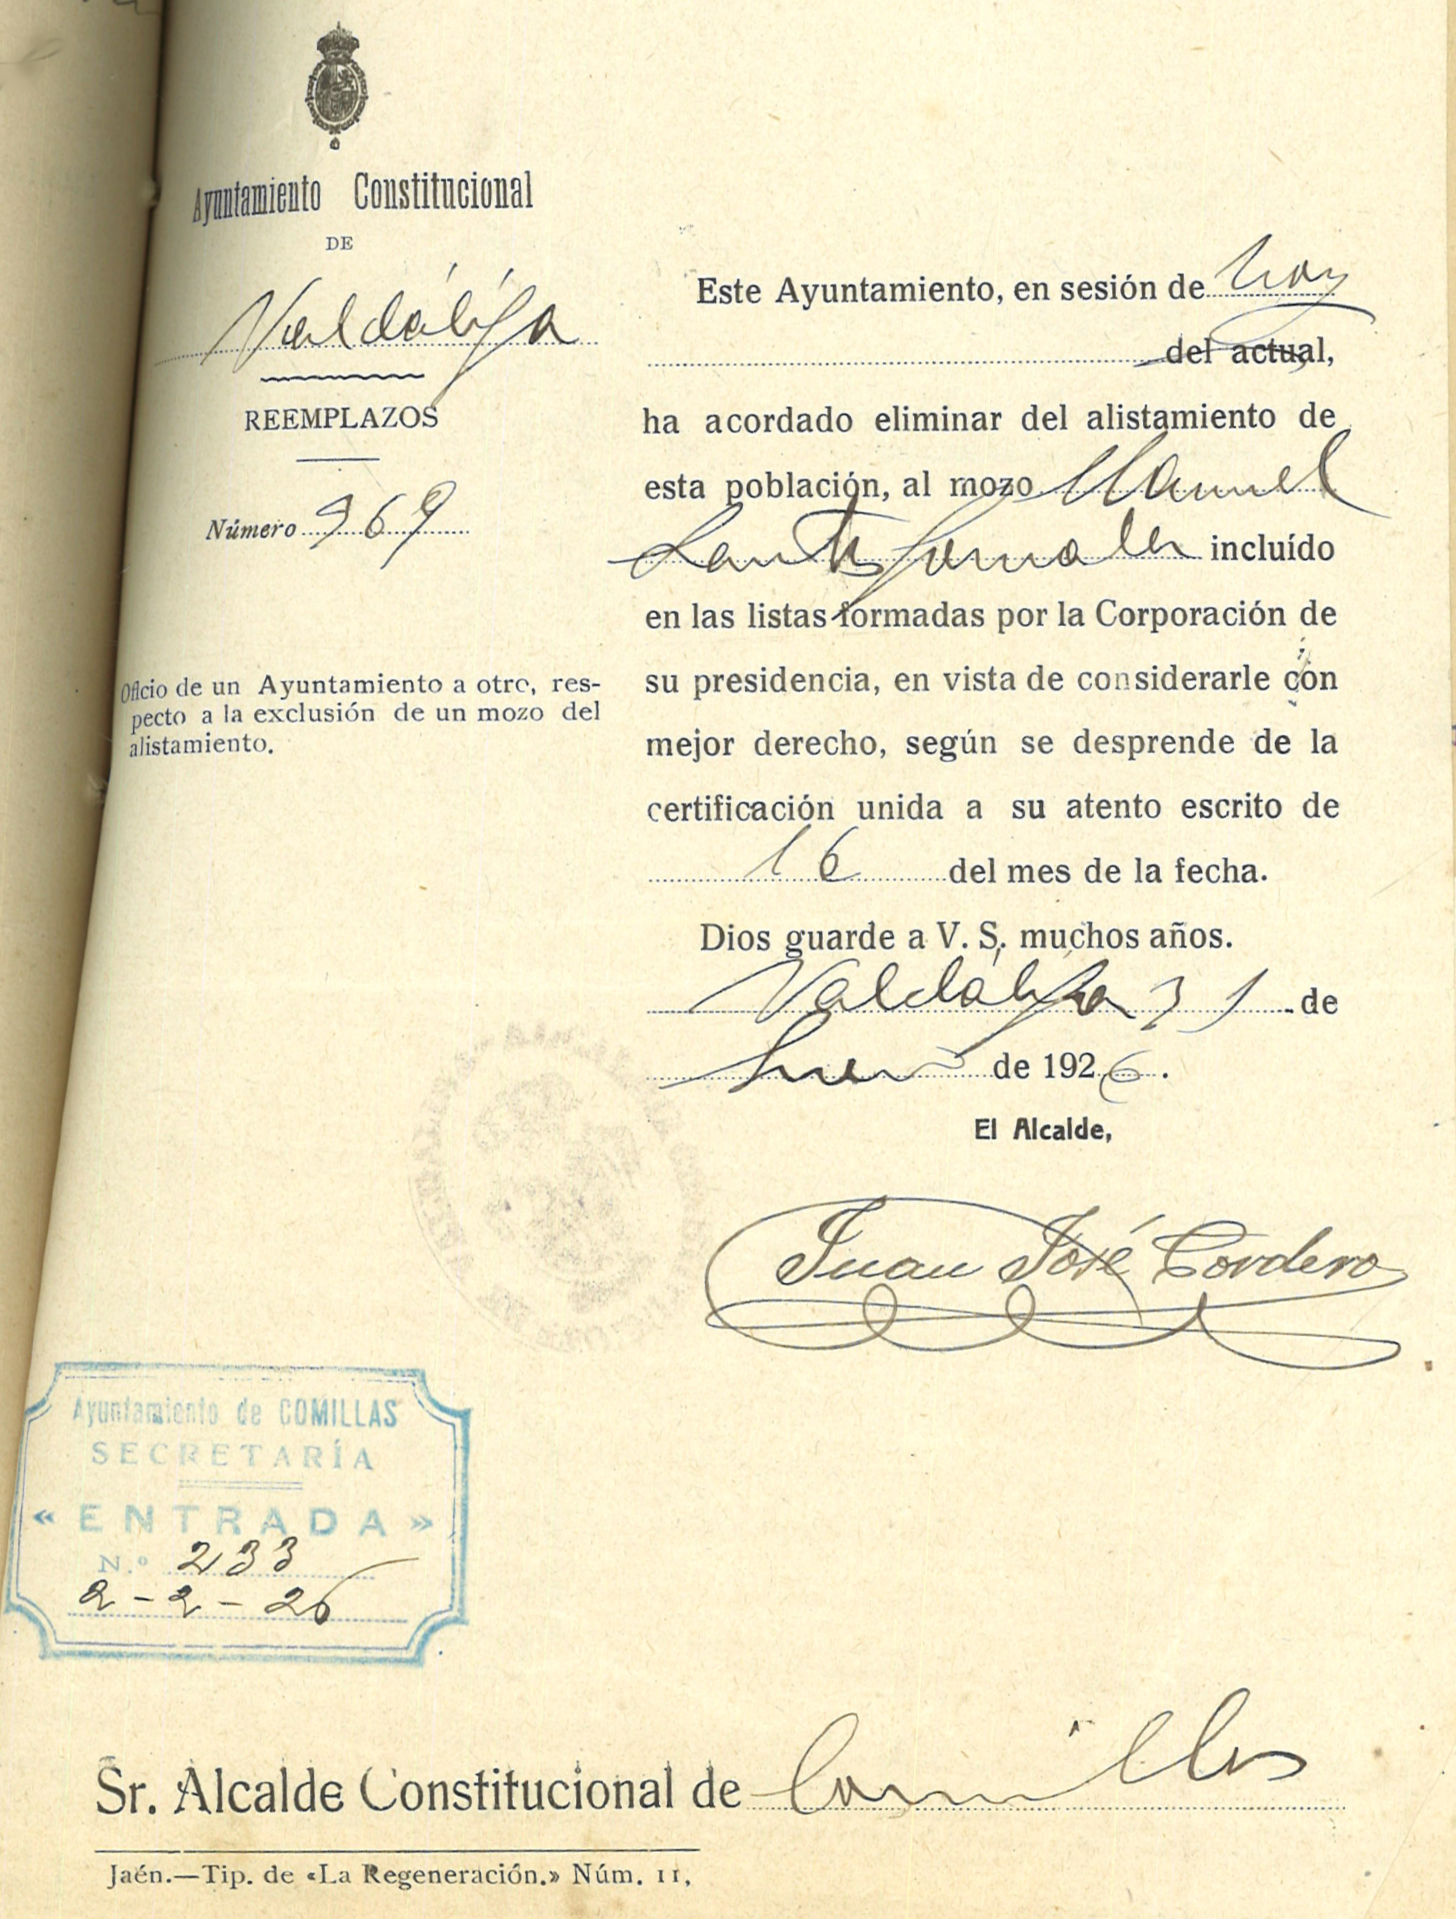 Ayuntamiento Constitucional
DE
Valdáliga
REEMPLAZOS
Número 969
Oficio de un Ayuntamiento a otro, res-
pecto a la exclusión de un mozo del
alistamiento.
Este Ayuntamiento, en sesión de hoy
del actual,
ha acordado eliminar del alistamiento de
esta población, al mozo Manuel
Santos González incluído
en las listas formadas por la Corporación de
su presidencia, en vista de considerarle con
mejor derecho, según se desprende de la
certificación unida a su atento escrito de
16 del mes de la fecha.
Dios guarde a V. S. muchos años.
Valdáliga 31 de
Enero de 1926.
El Alcalde,
Juan José Cordero
Ayuntamiento de COMILLAS
SECRETARÍA
« ENTRADA »
N.º 233
2-2-26
Sr. Alcalde Constitucional de Comillas
Jaén.—Tip. de «La Regeneración.» Núm. 11,